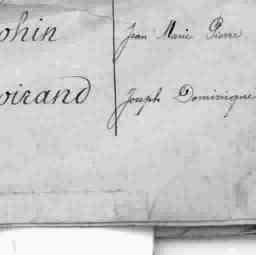 phin Jean Marie Pierre
oirand Joseph Dominique